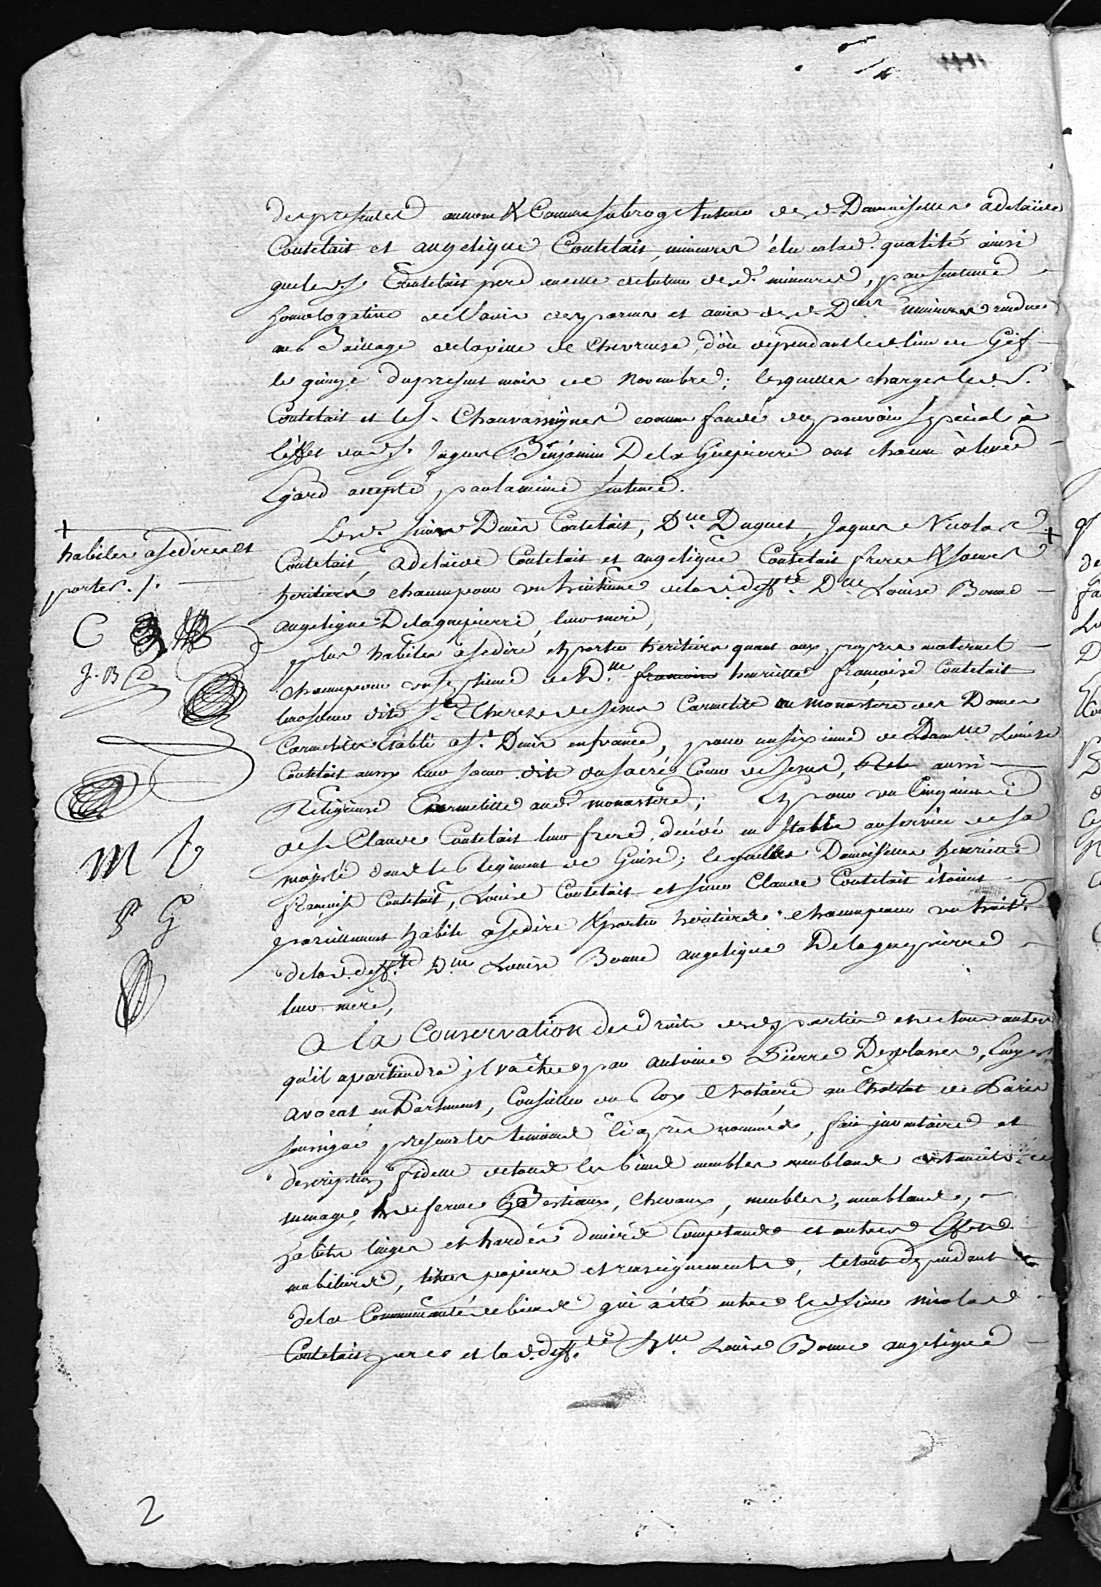 des presentes au nom & Comme subrogé tuteur desd. Damoiselles adelaïde
Contelait et angelique Contelait, mineures élu à lad. qualité ainsi
que led. S. Contelait pere à celle de tuteur desd. mineures, par sentence
homologative de l'avis des parens et amis desd. Dlles mineures rendue
au Baillage de la ville de Chevreuse, d'où dépendant led. lieu de Gif
le quinze du present mois de Novembre; lesquelles charges led. S.
Contelait et led. S. Chauvassaignes comme fondé du pouvoir special à
l'effet dud. S. Jaques Benjamin De la Guepierre ont chacun à leur
Egard accepté par la même sentence.
Lesd. Sieurs Denis Contelait, Dme Duguet, Jaques Nicolas
Contelait, adelaïde Contelait et angelique Contelait freres & soeurs
heritiers chacun pour un huitieme de lad. deffte. Dme Louise Bonne
angelique Delaguepierre, leur mere,
plus habiles à se dire et porter heritiers quant aux propres maternels
chacun pour un septieme de Dlle francoise henriette françoise Contelait
leur soeur dite Ste Therese de Jesus Carmelite au monastere des Dames
Carmelites établi à St Denis en france, pour un sixieme de Damlle Louise
Contelait aussi leur soeur dite du sacré Coeur de Jesus, aussi
Religieuse Carmelitte aud. monastere; Et pour un Cinquieme
de S. Claude Contelait leur frere, décédé en Italie au service de sa
majesté dans le Regiment de Guise; lesquelles Damoiselles henriette
françoise Contelait, Louise Contelait et sieur Claude Contelait étoient
pareillement habiles à se dire & porter heritiers chacun pour un huite.
de lad. deffte Dme Louise Bonne angelique Delaguepierre
leur mere,
A la Conservation des droits desd. parties et de tous autres
qu'il apartiendra il va être par Antoine Pierre Desplasses, Ecuyer
avocat en Parlement, Conseiller du Roy Notaire au Chatelet de Paris
soussigné presens les temoins ci après nommés, fait inventaire et
description fidelle de tous les biens meubles meublans ustenciles de
menage, de ferme Bestiaux, Chevaux, meubles, meublans,
habits linges et hardes deniers Comptans et autres Effets
mobiliers, titres papiers et renseignements, le tout dependant
de la Communauté de biens qui a été entre led. sieur Nicolas
Contelait pere et lad. deffte Dme Louise Bonne angelique
+
habiles à se dire et
porter ./.
C
J. B C
m
P G
2